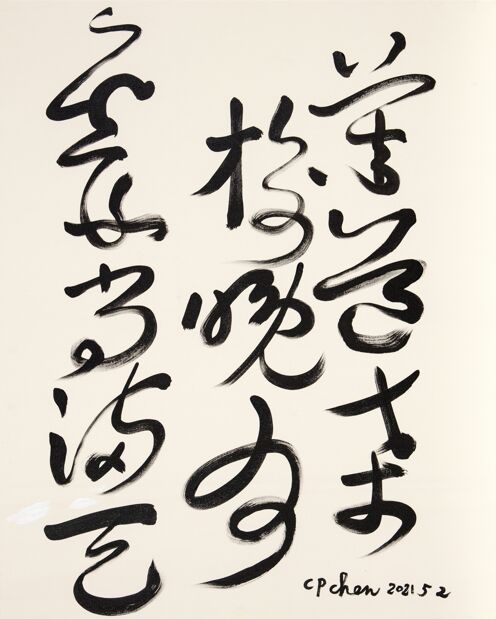 莫道桑
榆晚为
霞尚满天
CPchen 2021 5 2